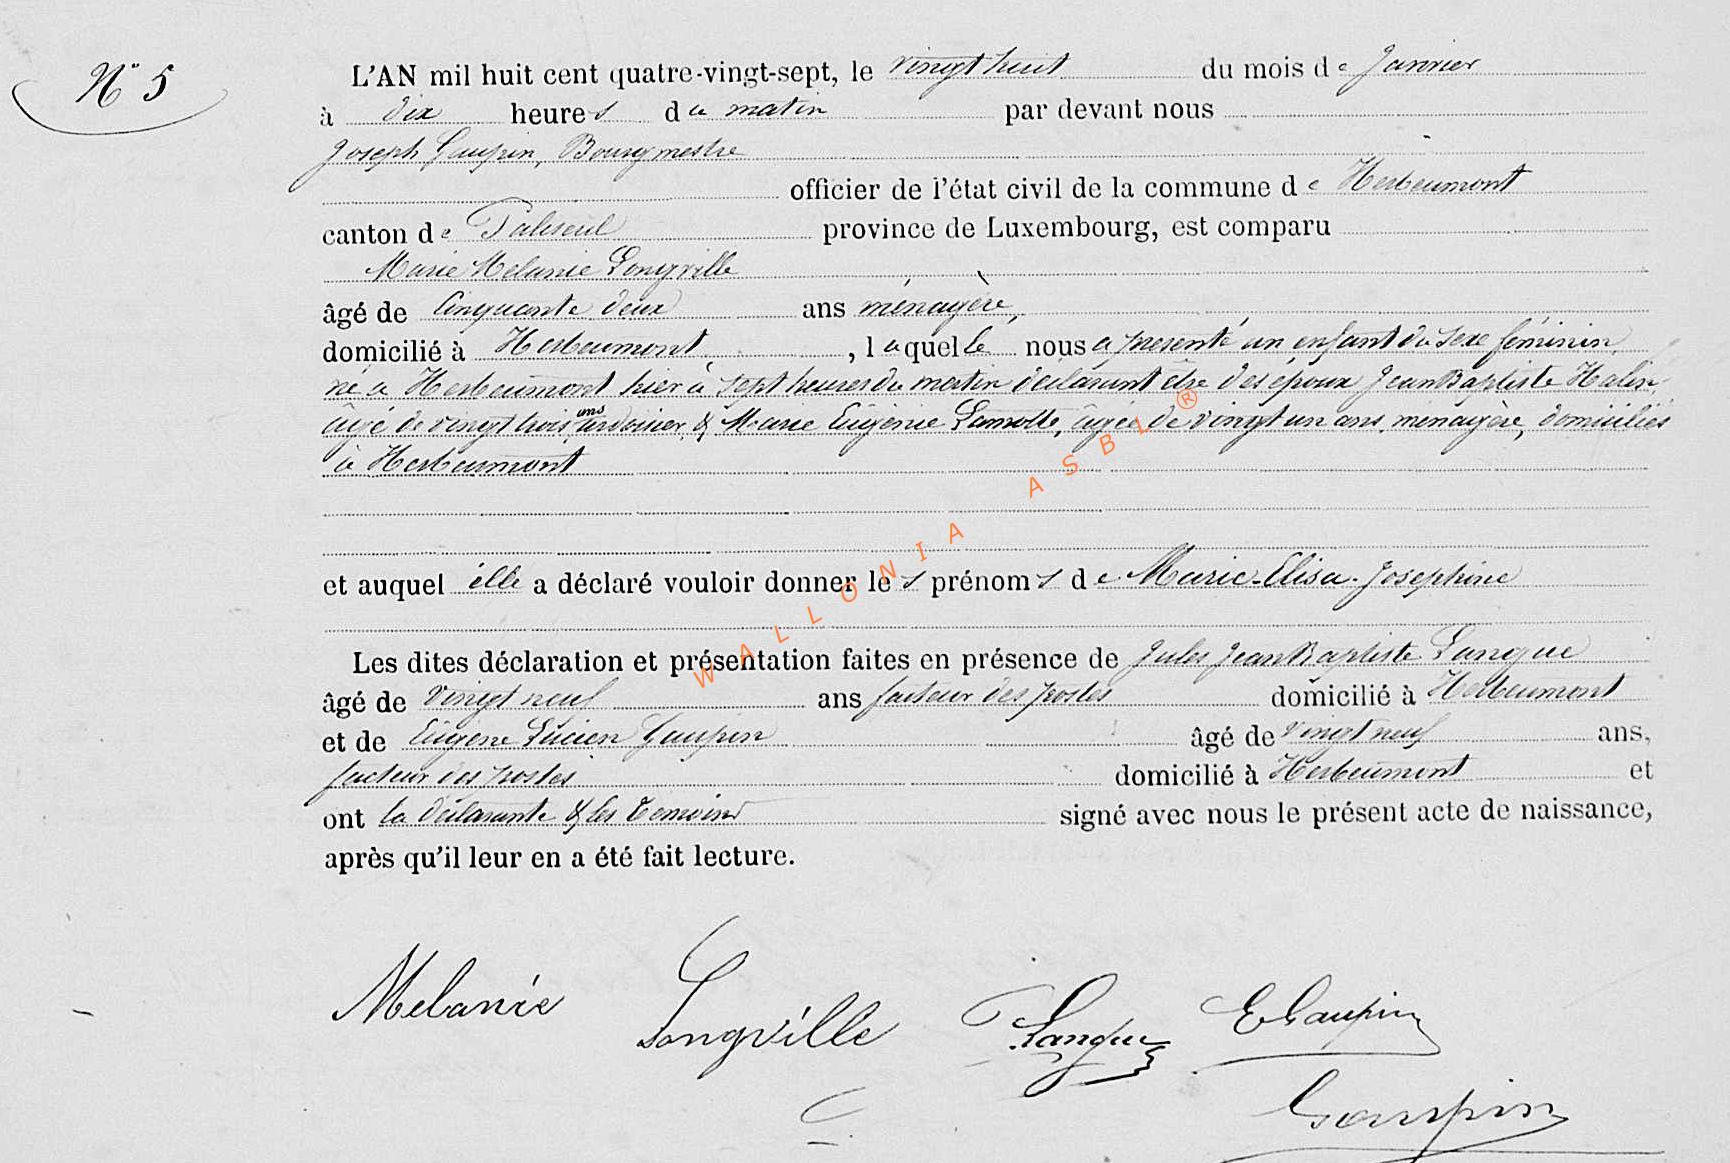 N° 5
L'AN mil huit cent quatre-vingt-sept, le vingt huit du mois de Janvier
à dix heures du matin par devant nous
Joseph Gaupin, Bourgmestre
officier de l'état civil de la commune de Herbeumont
canton de Paliseul province de Luxembourg, est comparu
Marie Mélanie Longville
âgé de cinquante deux ans ménagère,
domicilié à Herbeumont, laquelle nous a présenté un enfant du sexe féminin
né à Herbeumont hier à sept heures du matin déclarant être des époux Jean Baptiste Halin,
âgé de vingt trois ans ardoisier, & Marie Eugénie Lamotte, âgée de vingt un ans, ménagère, domiciliés
à Herbeumont
et auquel elle a déclaré vouloir donner les prénoms de Marie-Elisa-Josephine
Les dites déclaration et présentation faites en présence de Jules Jean Baptiste Langue
âgé de vingt neuf ans facteur des postes domicilié à Herbeumont
et de Eugène Lucien Gaupin âgé de vingt neuf ans,
facteur des postes domicilié à Herbeumont et
ont la déclarante & les témoins signé avec nous le présent acte de naissance,
après qu'il leur en a été fait lecture.
Melanie Longville Langue E Gaupin
Gaupin
WALLONIA ASBL ®